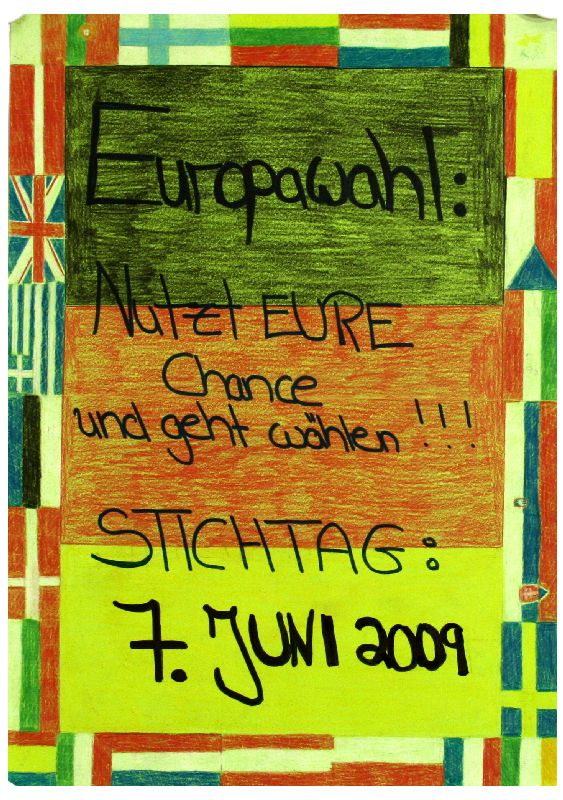 Europawahl:
Nutzt EURE
Chance
und geht wählen !!!
STICHTAG:
7. JUNI 2009